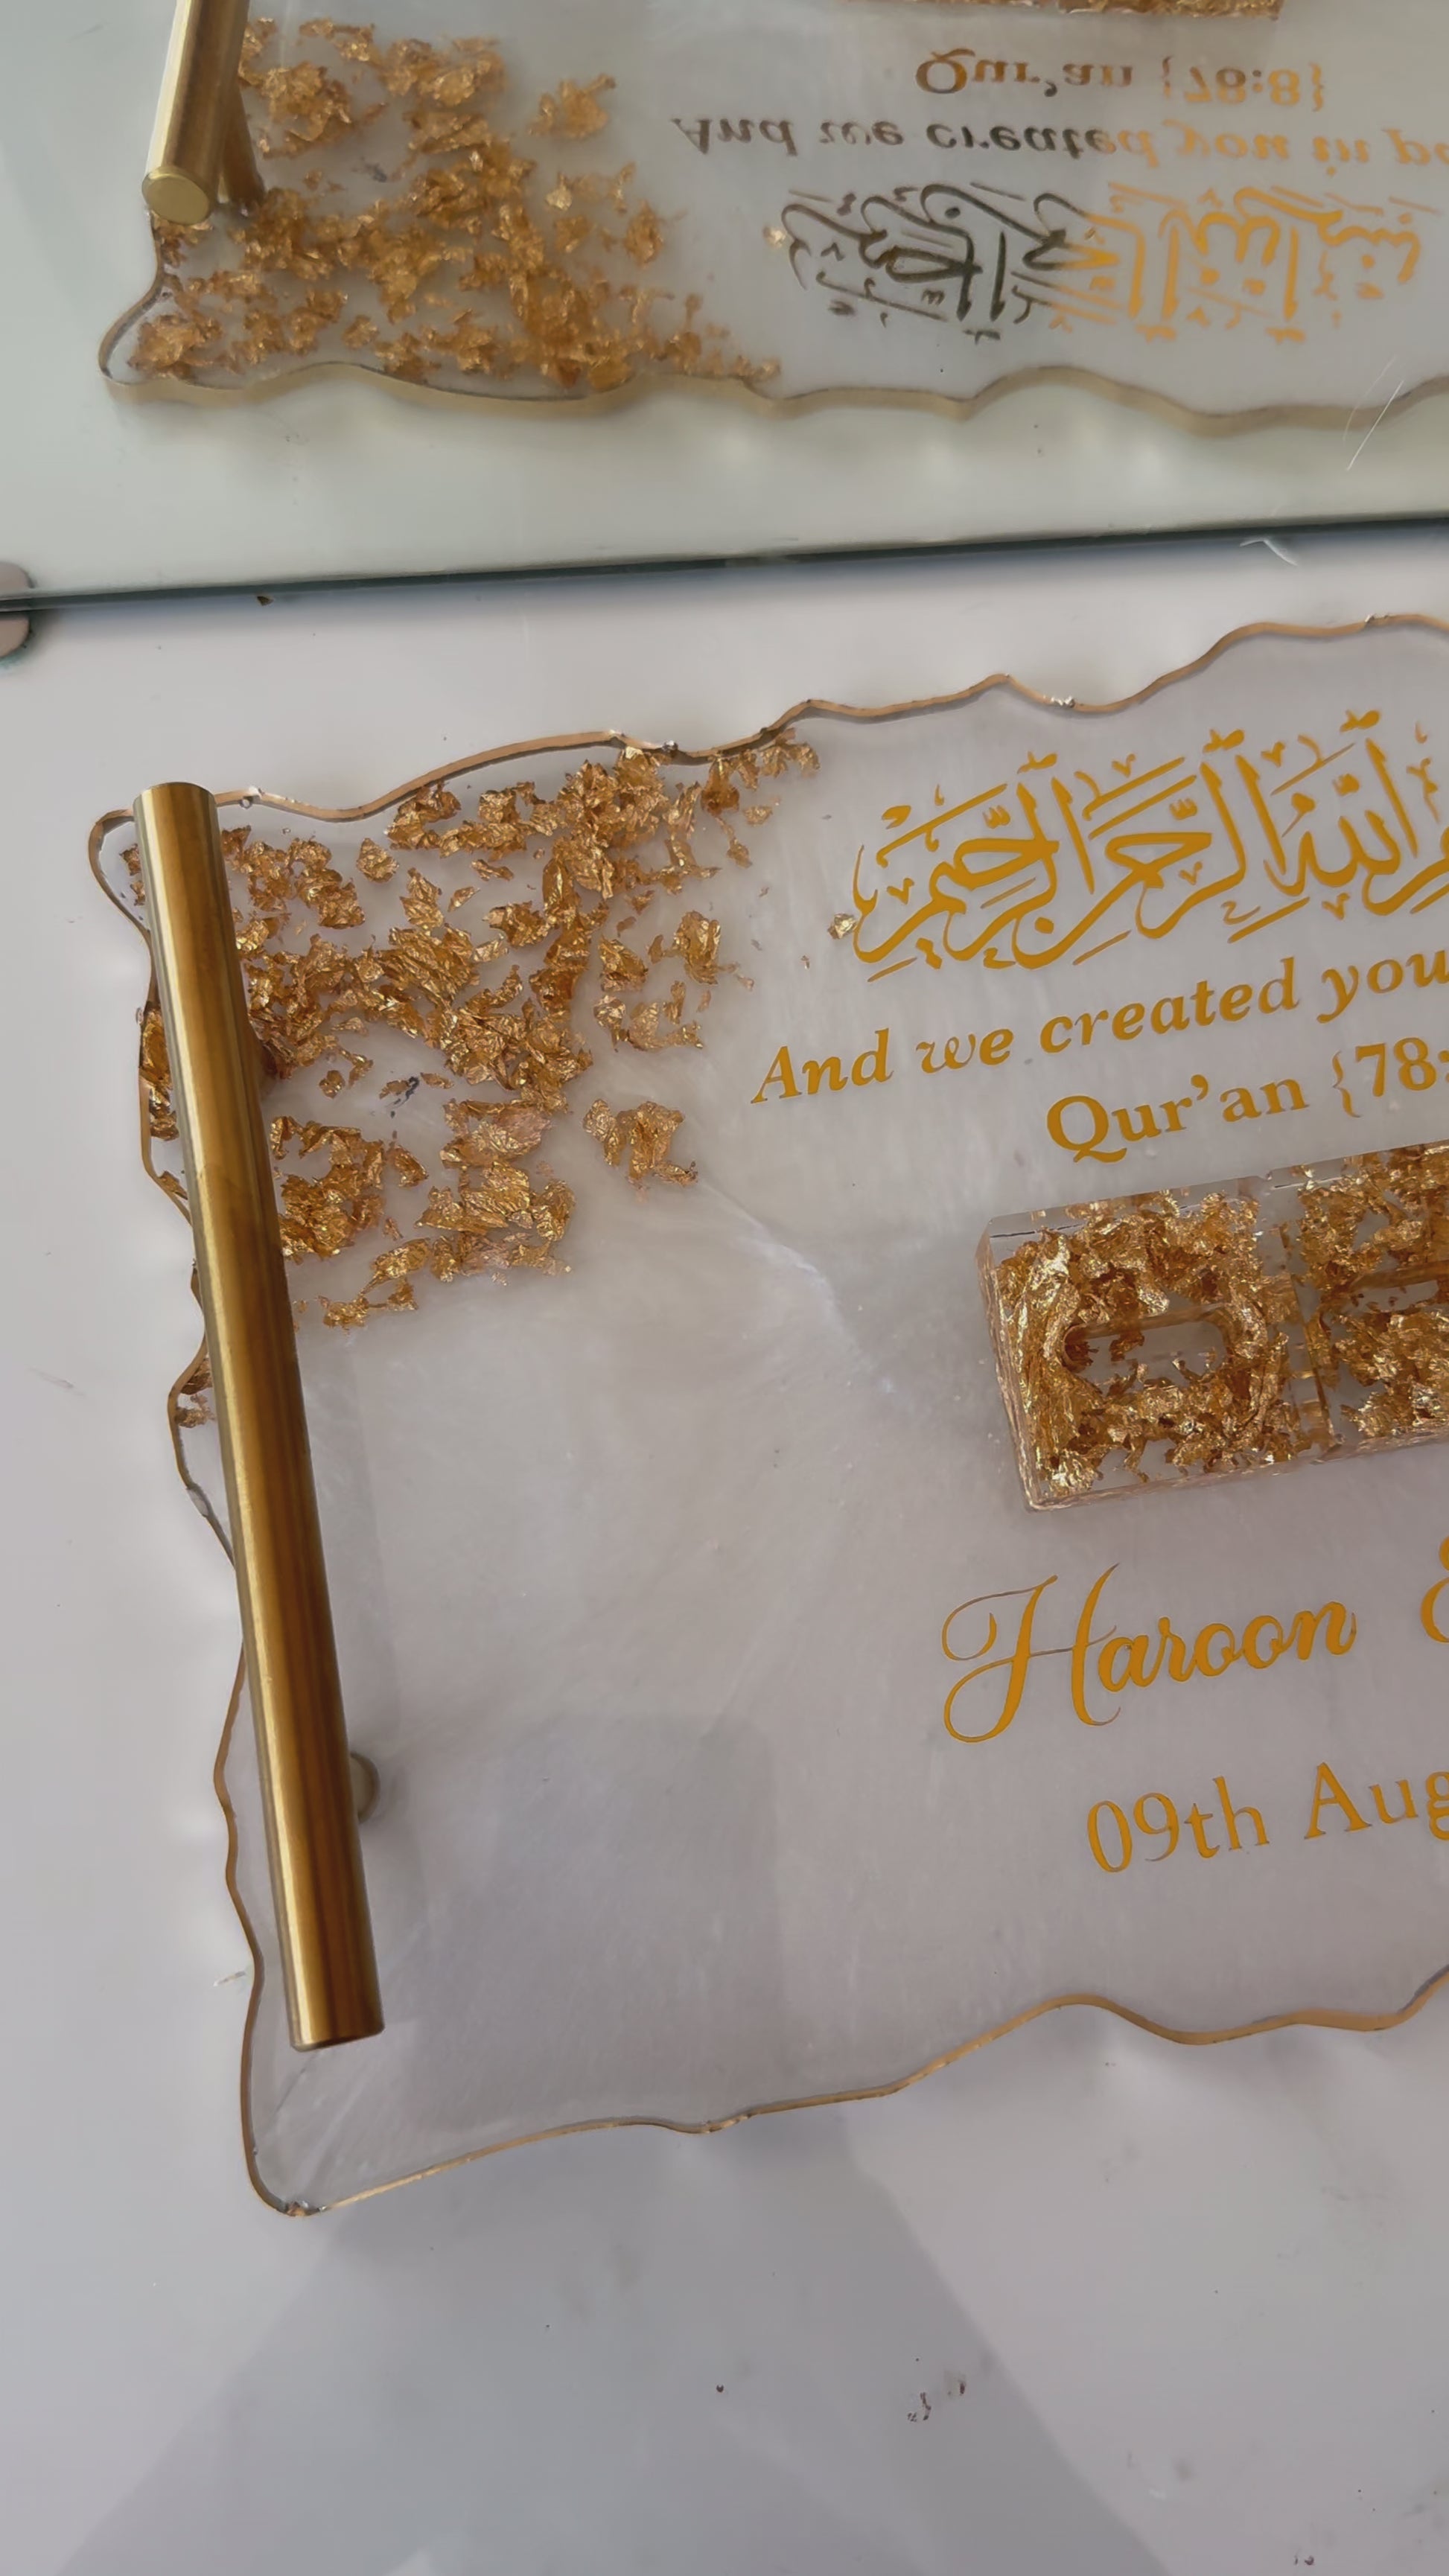 اللهِ الرَّحْمٰنِ الرَّحِيْمِ
And we created you
Qur’an {78:
Haroon
09th Aug